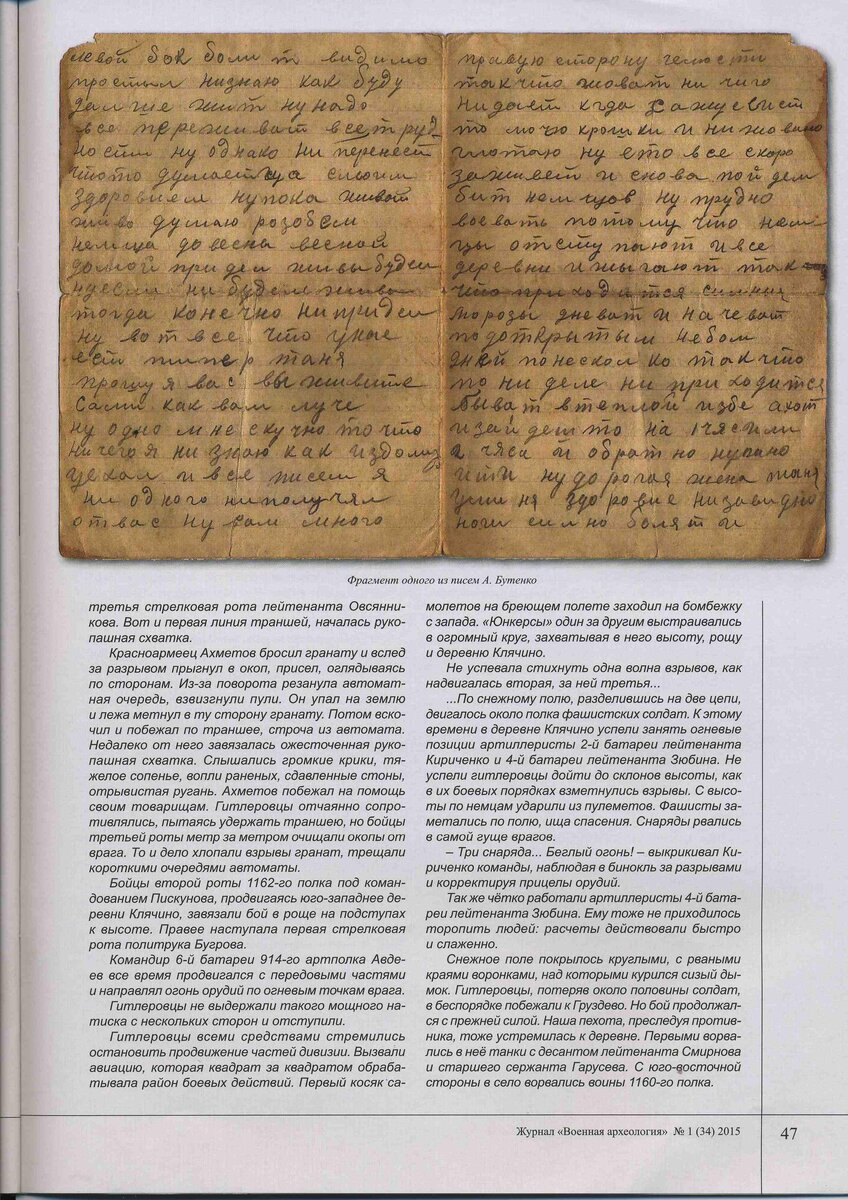 левой бок болит видимо
простыл низнаю как буду
далше жит ну надо
все переживат все труд
ности ну однако ни перенест
что то думаетца слоим
здоровием нупока живой
живо думаю розобем
немца до весна весной
домой придем живы будем
ндесли ни будем живы
тогда конечно нипридем
ну вот все что у нас
ест типер таня
прошу я вас вы живите
сами как вам луче
ну одно мне скучно то что
ничего я ни знаю как издому
уехал и все писем я
ни одного ниполучял
от вас ну сам много
правую сторону челюсти
так что жоват ни чиго
нидает кгда
то мочю крошки и ни жовано
глотаю ну ето все скоро
заживет и снова пойдем
бит немцов ну трудно
воевать потому что нем
цы отступают и все
деревни ижыгают так
что приходится силния
морозы дневат и начеват
под открытым небом
дней понесколко так что
по ни деле ни приходится
бывать втеплой избе ахот
изайдеш то на 1 чяс или
2 чяса и обратно нужно
ити ну дорогая жена таня
уминя здоровие низавидно
ноги силно болят и
Фрагмент одного из писем А. Бутенко
третья стрелковая рота лейтенанта Овсянни-
кова. Вот и первая линия траншей, началась руко-
пашная схватка.
Красноармеец Ахметов бросил гранату и вслед
за разрывом прыгнул в окоп, присел, оглядываясь
по сторонам. Из-за поворота резанула автомат-
ная очередь, взвизгнули пули. Он упал на землю
и лежа метнул в ту сторону гранату. Потом вско-
чил и побежал по траншее, строча из автомата.
Недалеко от него завязалась ожесточенная руко-
пашная схватка. Слышались громкие крики, тя-
желое сопенье, вопли раненых, сдавленные стоны,
отрывистая ругань. Ахметов побежал на помощь
своим товарищам. Гитлеровцы отчаянно сопро-
тивлялись, пытаясь удержать траншею, но бойцы
третьей роты метр за метром очищали окопы от
врага. То и дело хлопали взрывы гранат, трещали
короткими очередями автоматы.
Бойцы второй роты 1162-го полка под коман-
дованием Пискунова, продвигаясь юго-западнее де-
ревни Клячино, завязали бой в роще на подступах
к высоте. Правее наступала первая стрелковая
рота политрука Бугрова.
Командир 6-й батареи 914-го артполка Авде-
ев все время продвигался с передовыми частями
и направлял огонь орудий по огневым точкам врага.
Гитлеровцы не выдержали такого мощного на-
тиска с нескольких сторон и отступили.
Гитлеровцы всеми средствами стремились
остановить продвижение частей дивизии. Вызвали
авиацию, которая квадрат за квадратом обраба-
тывала район боевых действий. Первый косяк са-
молетов на бреющем полете заходил на бомбежку
с запада. «Юнкерсы» один за другим выстраивались
в огромный круг, захватывая в него высоту, рощу
и деревню Клячино.
Не успевала стихнуть одна волна взрывов, как
надвигалась вторая, за ней третья...
...По снежному полю, разделившись на две цепи,
двигалось около полка фашистских солдат. К этому
времени в деревне Клячино успели занять огневые
позиции артиллеристы 2-й батареи лейтенанта
Кириченко и 4-й батареи лейтенанта Зюбина. Не
успели гитлеровцы дойти до склонов высоты, как
в их боевых порядках взметнулись взрывы. С высо-
ты по немцам ударили из пулеметов. Фашисты за-
метались по полю, ища спасения. Снаряды рвались
в самой гуще врагов.
– Три снаряда... Беглый огонь! – выкрикивал Ки-
риченко команды, наблюдая в бинокль за разрывами
и корректируя прицелы орудий.
Так же чётко работали артиллеристы 4-й бата-
реи лейтенанта Зюбина. Ему тоже не приходилось
торопить людей: расчеты действовали быстро
и слаженно.
Снежное поле покрылось круглыми, с рваными
краями воронками, над которыми курился сизый ды-
мок. Гитлеровцы, потеряв около половины солдат,
в беспорядке побежали к Груздево. Но бой продолжал-
ся с прежней силой. Наша пехота, преследуя против-
ника, тоже устремилась к деревне. Первыми ворва-
лись в неё танки с десантом лейтенанта Смирнова
и старшего сержанта Гарусева. С юго-восточной
стороны в село ворвались воины 1160-го полка.
Журнал «Военная археология» № 1 (34) 2015
47